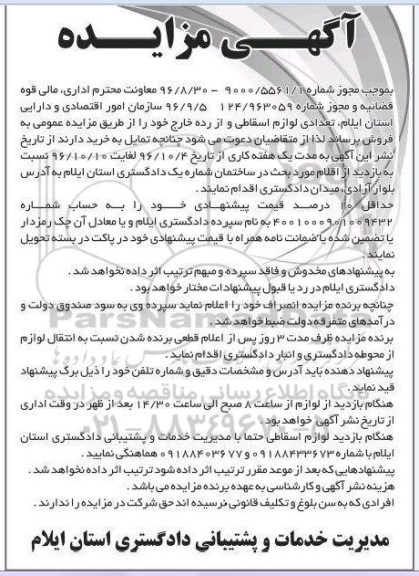 آگهـــی مزایـــده
بموجب مجوز شماره ۹۰۰۰/۵۵۶۱/۱ - ۹۶/۸/۳۰ معاونت محترم اداری، مالی قوه
قضائیه و مجوز شماره ۱۲۴/۹۶۳۰۵۹ ۹۶/۹/۵ سازمان امور اقتصادی و دارایی
استان ایلام، تعدادی لوازم اسقاطی و از رده خارج خود را از طریق مزایده عمومی به
فروش برساند لذا از متقاضیان دعوت می شود چنانچه تمایل به خرید دارند از تاریخ
نشر این آگهی به مدت یک هفته کاری از تاریخ ۹۶/۱۰/۴ لغایت ۹۶/۱۰/۱۰ نسبت
به بازدید از اقلام مورد بحث در ساختمان شماره یک دادگستری استان ایلام به آدرس
بلوار آزادی، میدان دادگستری اقدام نمایند.
حداقل ۱۰ درصد قیمت پیشنهـادی خـــود را بـــه حساب شمـــاره
۴۰۰۱۰۰۰۹۰۱۰۰۹۴۳۲ به نام سپرده دادگستری ایلام و یا معادل آن چک رمزدار
یا تضمین شده یا ضمانت نامه همراه با قیمت پیشنهادی خود در پاکت در بسته تحویل
نمایند.
به پیشنهادهای مخدوش و فاقد سپرده و مبهم ترتیب اثر داده نخواهد شد.
دادگستری ایلام در رد یا قبول پیشنهادات مختار خواهد بود.
چنانچه برنده مزایده انصراف خود را اعلام نماید سپرده وی به سود صندوق دولت و
درآمدهای متفرقه دولت ضبط خواهد شد.
برنده مزایده ظرف مدت ۳ روز پس از اعلام قطعی برنده شدن نسبت به انتقال لوازم
از محوطه دادگستری و انبار دادگستری اقدام نماید.
پیشنهاد دهنده باید آدرس و مشخصات دقیق و شماره تلفن خود را ذیل برگ پیشنهاد
قید نماید.
هنگام بازدید از لوازم از ساعت ۸ صبح الی ساعت ۱۴/۳۰ بعد از ظهر در وقت اداری
از تاریخ نشر آگهی خواهد بود.
هنگام بازدید لوازم اسقاطی حتما با مدیریت خدمات و پشتیبانی دادگستری استان
ایلام با شماره ۰۹۱۸۸۴۳۳۶۷۳ و ۰۹۱۸۸۴۰۳۶۷۷ هماهنگی نمایید.
پیشنهادهایی که بعد از موعد مقرر ترتیب اثر داده شود ترتیب اثر داده نخواهد شد.
هزینه نشر آگهی و کارشناسی به عهده برنده مزایده می باشد.
افرادی که به سن بلوغ و تکلیف قانونی نرسیده اند حق شرکت در مزایده را ندارند.
مدیریت خدمات و پشتیبانی دادگستری استان ایلام